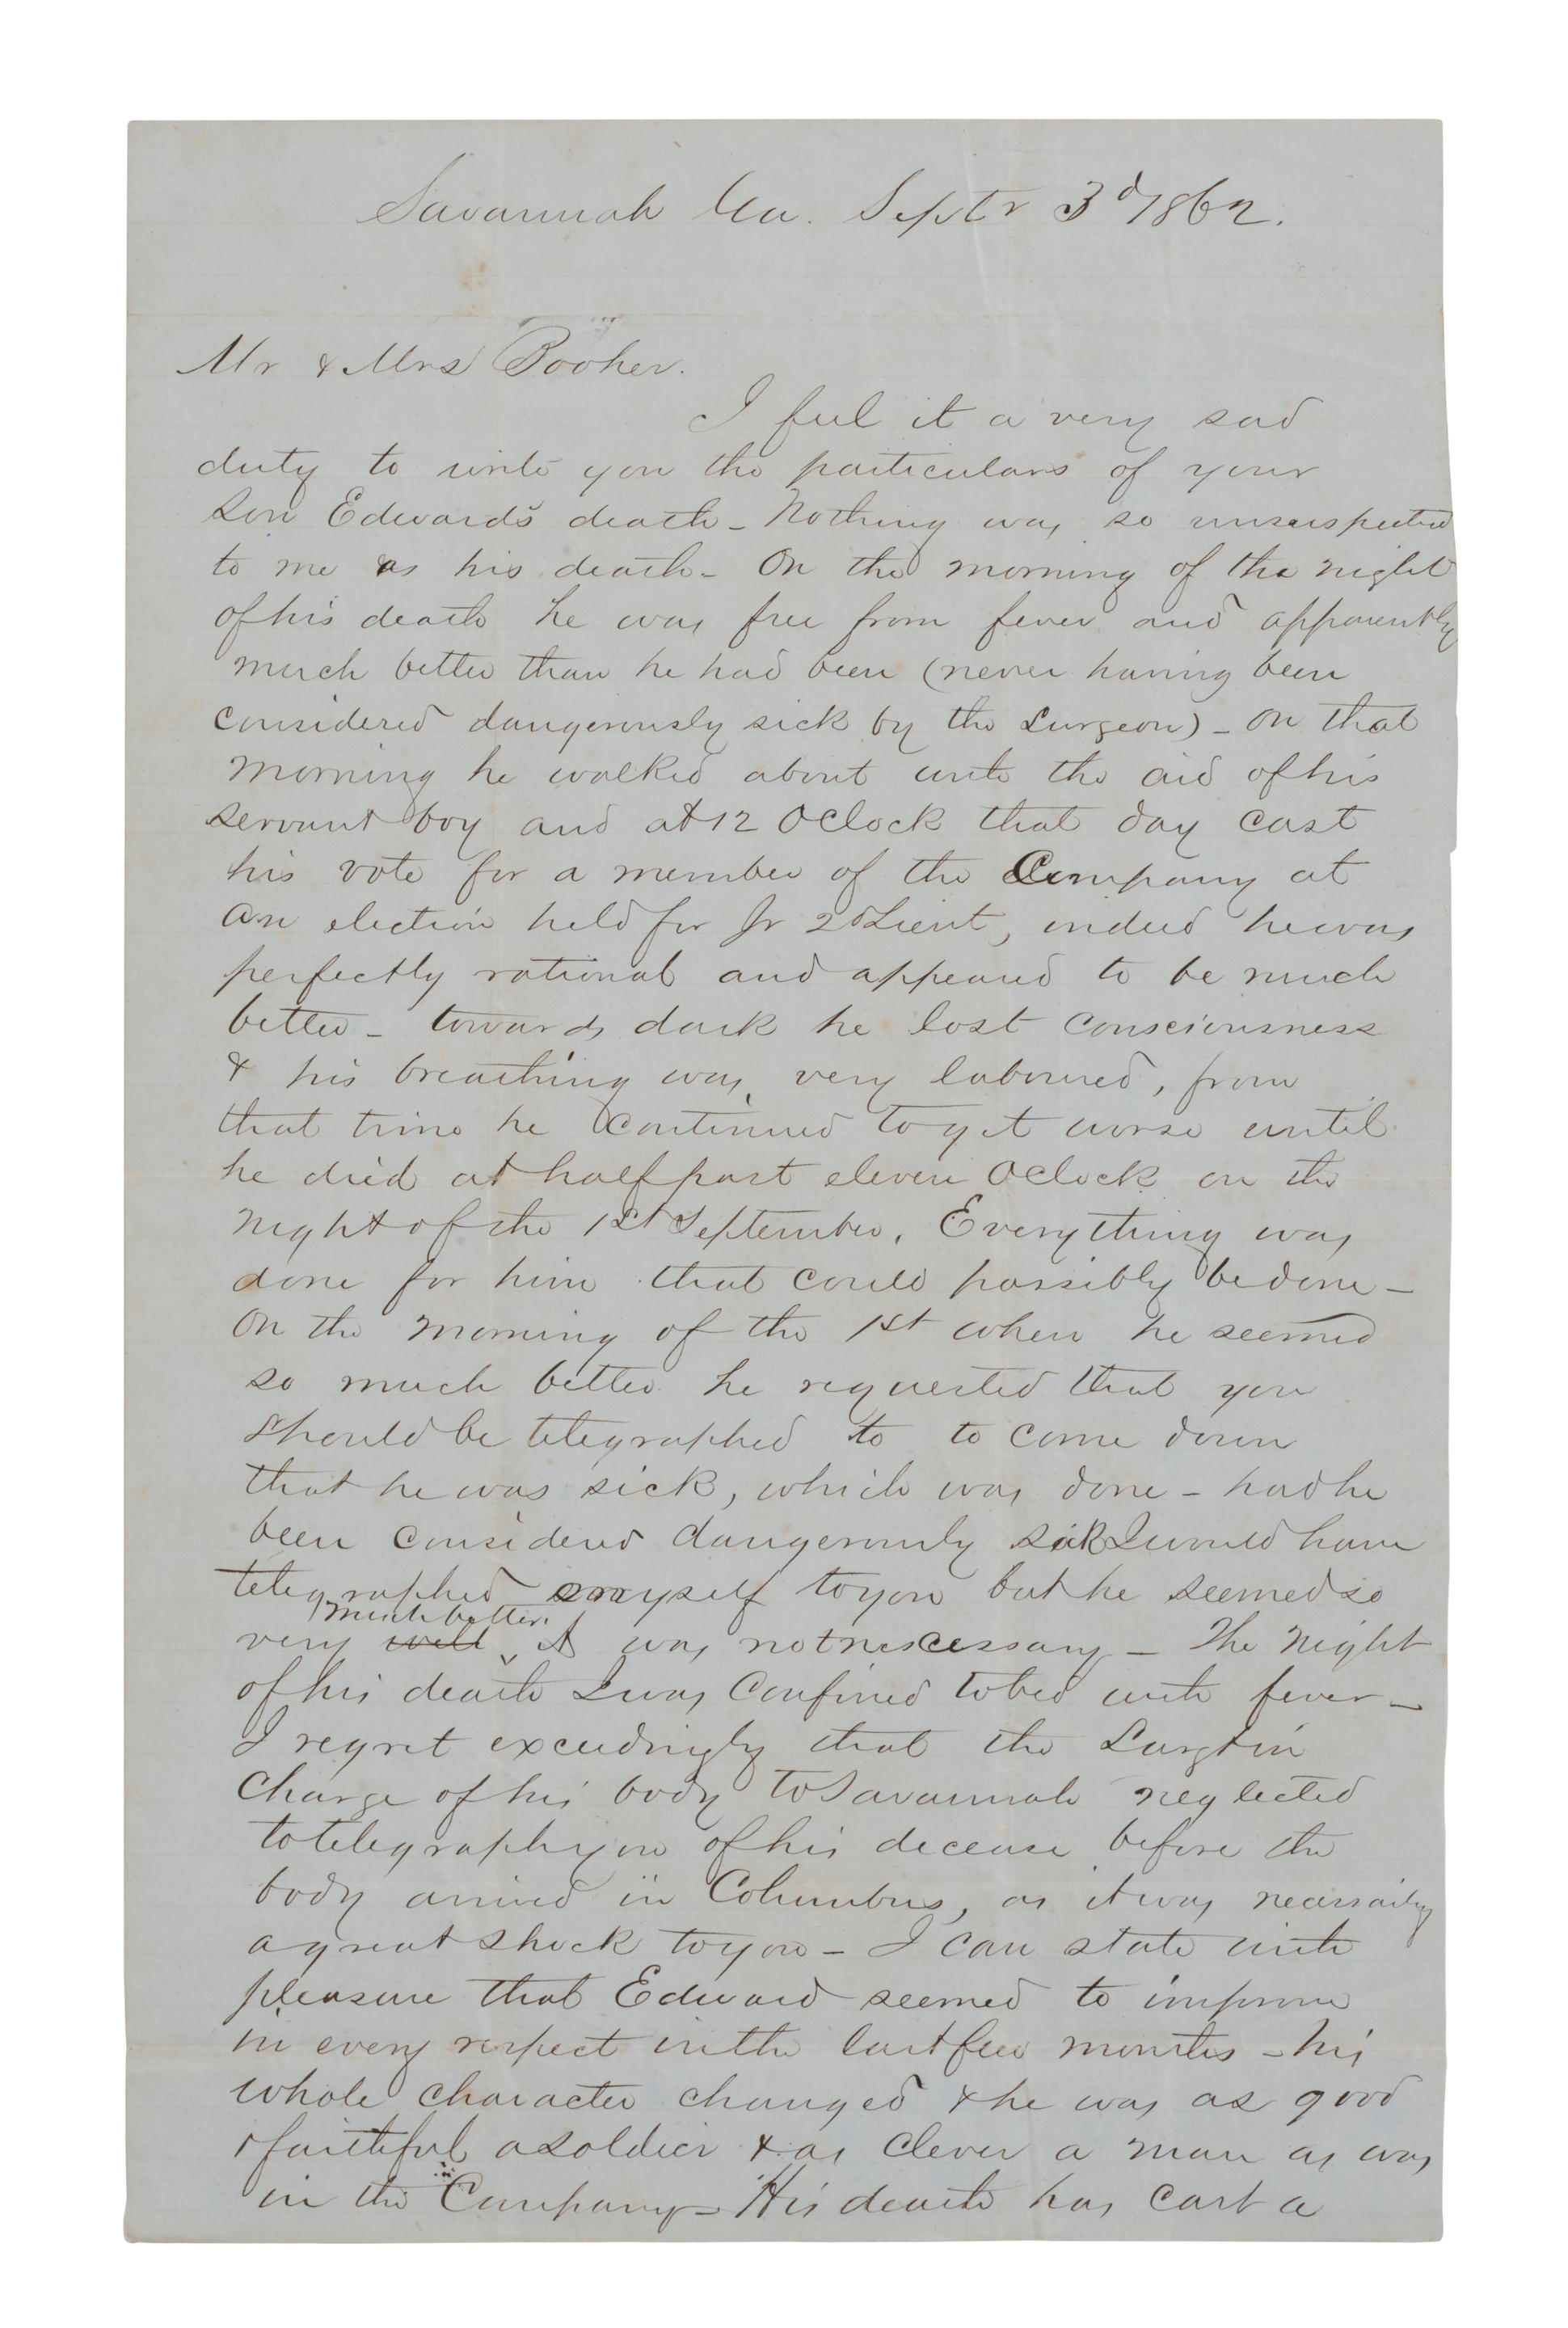 Savannah Ga. Septr 3d/1862.
Mr & Mrs Booher.
I feel it a very sad
duty to write you the particulars of your
Son Edward's death - Nothing was so unsuspected
to me as his death - On the morning of the night
of his death he was free from fever and apparently
much better than he had been (never having been
considered dangerously sick by the Surgeon) - On that
morning he walked about with the aid of his
servant boy and at 12 OClock that day cast
his vote for a member of the Company at
an election held for Jr 2d Lieut, indeed he was
perfectly rational and appeared to be much
better - towards dark he lost consciousness
& his breathing was very laboured, from
that time he continued to get worse until
he died at half past eleven Oclock on the
night of the 1st September. Everything was
done for him that could possibly be done -
On the morning of the 1st when he seemed
so much better he requested that you
should be telegraphed to to come down
that he was sick, which was done - had he
been considered dangerously sick I would have
telegraphed myself to you but he seemed so
very well much better. it was not nescessary - The night
of his death I was confined to bed with fever -
I regret exceedingly that the Sargt in
charge of his body to Savannah neglected
to telegraph you of his decease before the
body arrived in Columbus, as it was necessarily
a great shock to you - I can state with
pleasure that Edward seemed to improve
in every respect in the last few months - his
whole character changed & he was as good
& faithful a soldier & as clever a man as was
in the Company - His death has cast a